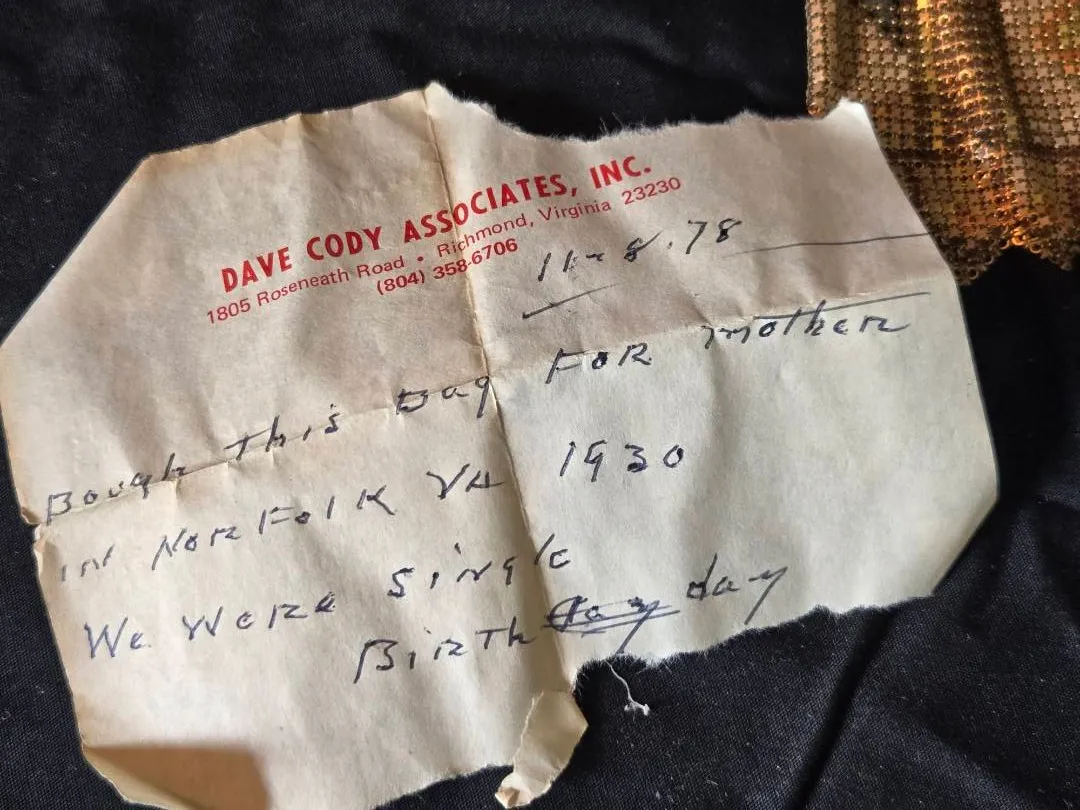 DAVE CODY ASSOCIATES, INC.
1805 Roseneath Road • Richmond, Virginia 23230
(804) 358-6706
11-8.78
Bough This Bag FOR mother
in NORFolk VA 1930
We WeRe Single
BiRTh day day